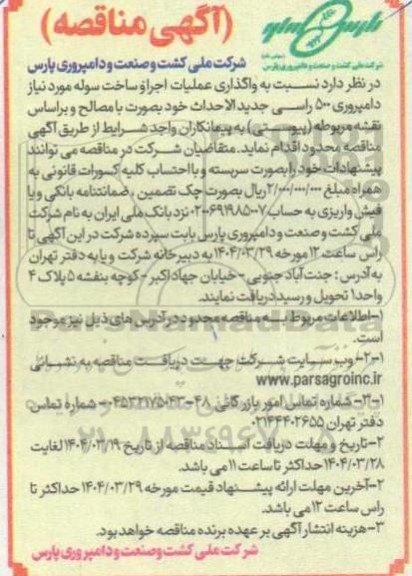 (آگهی مناقصه)
شرکت ملی کشت و صنعت و دامپروری پارس
شرکت ملی کشت و صنعت و دامپروری پارس
در نظر دارد نسبت به واگذاری عملیات اجرا و ساخت سوله مورد نیاز
دامپروری ۵۰۰ راسی جدید الاحداث خود بصورت با مصالح و براساس
نقشه مربوطه (پیوستی) به پیمانکاران واجد شرایط از طریق آگهی
مناقصه محدود اقدام نماید. متقاضیان شرکت در مناقصه می توانند
پیشنهادات خود را بصورت سربسته و با احتساب کلیه کسورات قانونی به
همراه مبلغ ۲/۰۰۰/۰۰۰/۰۰۰ ریال بصورت چک تضمین ، ضمانتنامه بانکی و یا
فیش واریزی به حساب ۰۲۰۰۶۹۱۹۸۵۰۰۷ نزد بانک ملی ایران به نام شرکت
ملی کشت و صنعت و دامپروری پارس بابت سپرده شرکت در این آگهی تا
راس ساعت ۱۲ مورخه ۱۴۰۴/۰۳/۲۹ به دبیرخانه شرکت و یا به دفتر تهران
به آدرس : جنت آباد جنوبی - خیابان جهاد اکبر - کوچه بنفشه ۵ پلاک ۴
واحد۱ تحویل و رسید دریافت نمایند.
۱-اطلاعات مربوط به مناقصه محدود در آدرس های ذیل نیز موجود
است.
۱-۲-وب سایت شرکت جهت دریافت مناقصه به نشانی
www.parsagroinc.ir
۱-۳- شماره تماس امور بازرگانی ۴۸-۰۴۵۳۲۱۷۵۰۴۳- شماره تماس
دفتر تهران ۰۲۱۴۴۴۰۲۶۵۵
۲-تاریخ و مهلت دریافت اسناد مناقصه از تاریخ ۱۴۰۴/۰۳/۱۹ لغایت
۱۴۰۴/۰۳/۲۸ حداکثر تا ساعت ۱۱ می باشد.
۲-آخرین مهلت ارائه پیشنهاد قیمت مورخه ۱۴۰۴/۰۳/۲۹ حداکثر تا
راس ساعت ۱۲ می باشد.
۳-هزینه انتشار آگهی بر عهده برنده مناقصه خواهد بود.
شرکت ملی کشت و صنعت و دامپروری پارس
ParsNamadData
۰۲۱-۸۸۳۴۹۶۷۰